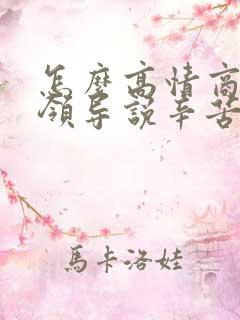 怎麼高情商
領导說辛苦
馬卡洛娃